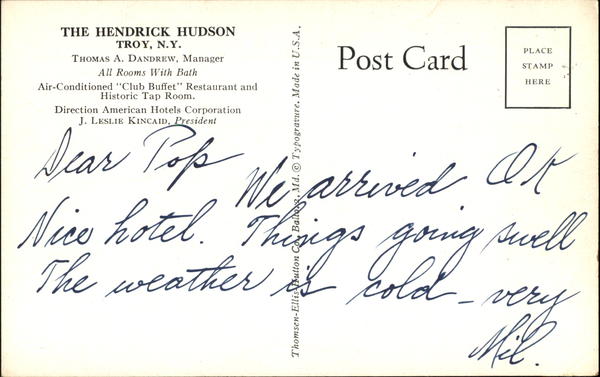 THE HENDRICK HUDSON
TROY, N.Y.
THOMAS A. DANDREW, Manager
All Rooms With Bath
Air-Conditioned "Club Buffet" Restaurant and
Historic Tap Room.
Direction American Hotels Corporation
J. LESLIE KINCAID, President
Thomsen-Ellis-Hutton Co., Balto., Md. © Typogravure, Made in U.S.A.
Post Card
PLACE
STAMP
HERE
Dear Pop
We arrived OK
Nice hotel. Things going swell
The weather is cold - very
Mil.